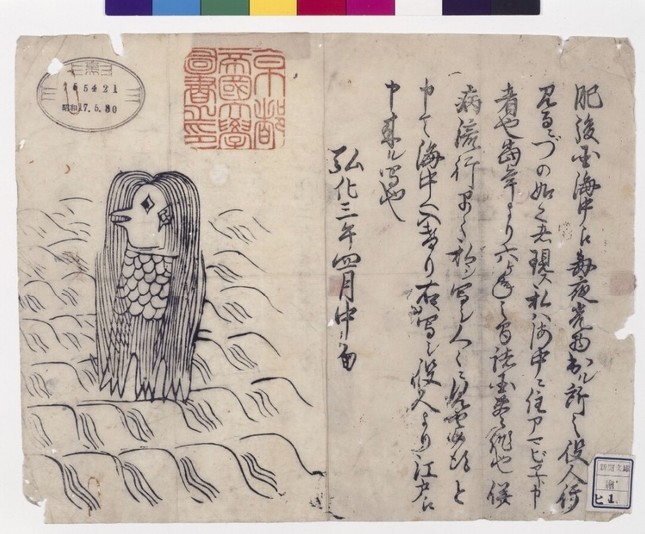 肥後国海中江毎夜光物出ル所之役人行
見るニづの如く者現ス私ハ海中ニ住アマビヱト申
者也當年より六ヶ年之間諸国豊作也併
病流行早々私ヲ写シ人々ニ見セ候得と
申て海中へ入けり右写シ役人より江戸江
申来ル写也
弘化三年四月中旬
京都
帝國大學
圖書之印
165421
昭和17.5.30
新聞文庫
繪
ヒ